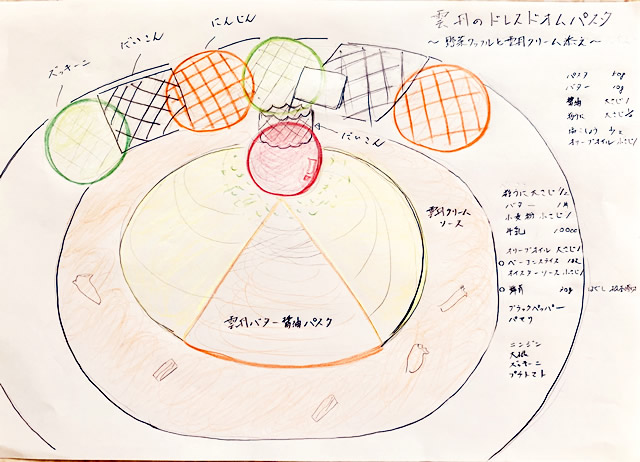 雲丹のドレスドオムパスタ
～野菜ワッフルと雲丹クリーム添え～
にんじん
だいこん
ズッキーニ
だいこん
雲丹クリーム
ソース
雲丹バター醤油パスタ
パスタ 50g
バター 10g
醤油 大さじ1
粉うに 大さじ1/2
オリーブオイル 小さじ1
粉うに 大さじ1/2
バター 1片
小麦粉 小さじ1
牛乳 100cc
オリーブオイル 大さじ1
ベーコンスライス
オイスターソース 小さじ1
舞茸 30g
ブラックペッパー
パセリ
ニンジン
大根
ズッキーニ
プチトマト